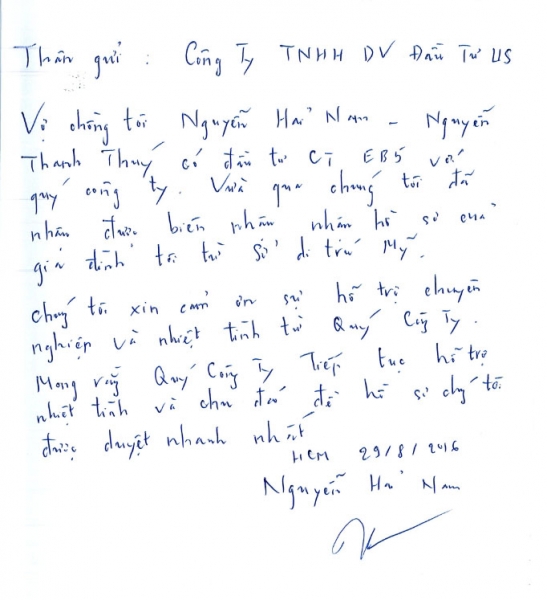 Thân gửi : Công Ty TNHH DV Đầu Tư US
Vợ chồng tôi Nguyễn Hải Nam - Nguyễn
Thanh Thuý có đầu tư CT EB5 với
quý công ty. Vừa qua chúng tôi đã
nhân được biên nhân nhân hồ sơ của
gia đình tôi từ Sở di trú Mỹ.
chúng tôi xin cảm ơn sự hỗ trợ chuyên
nghiệp và nhiệt tình từ Quý Công Ty.
Mong rằng Quý Công Ty Tiếp tục hỗ trợ
nhiệt tình và chu đáo để hồ sơ chúng tôi
được duyệt nhanh nhất
HCM 29/8/2016
Nguyễn Hải Nam